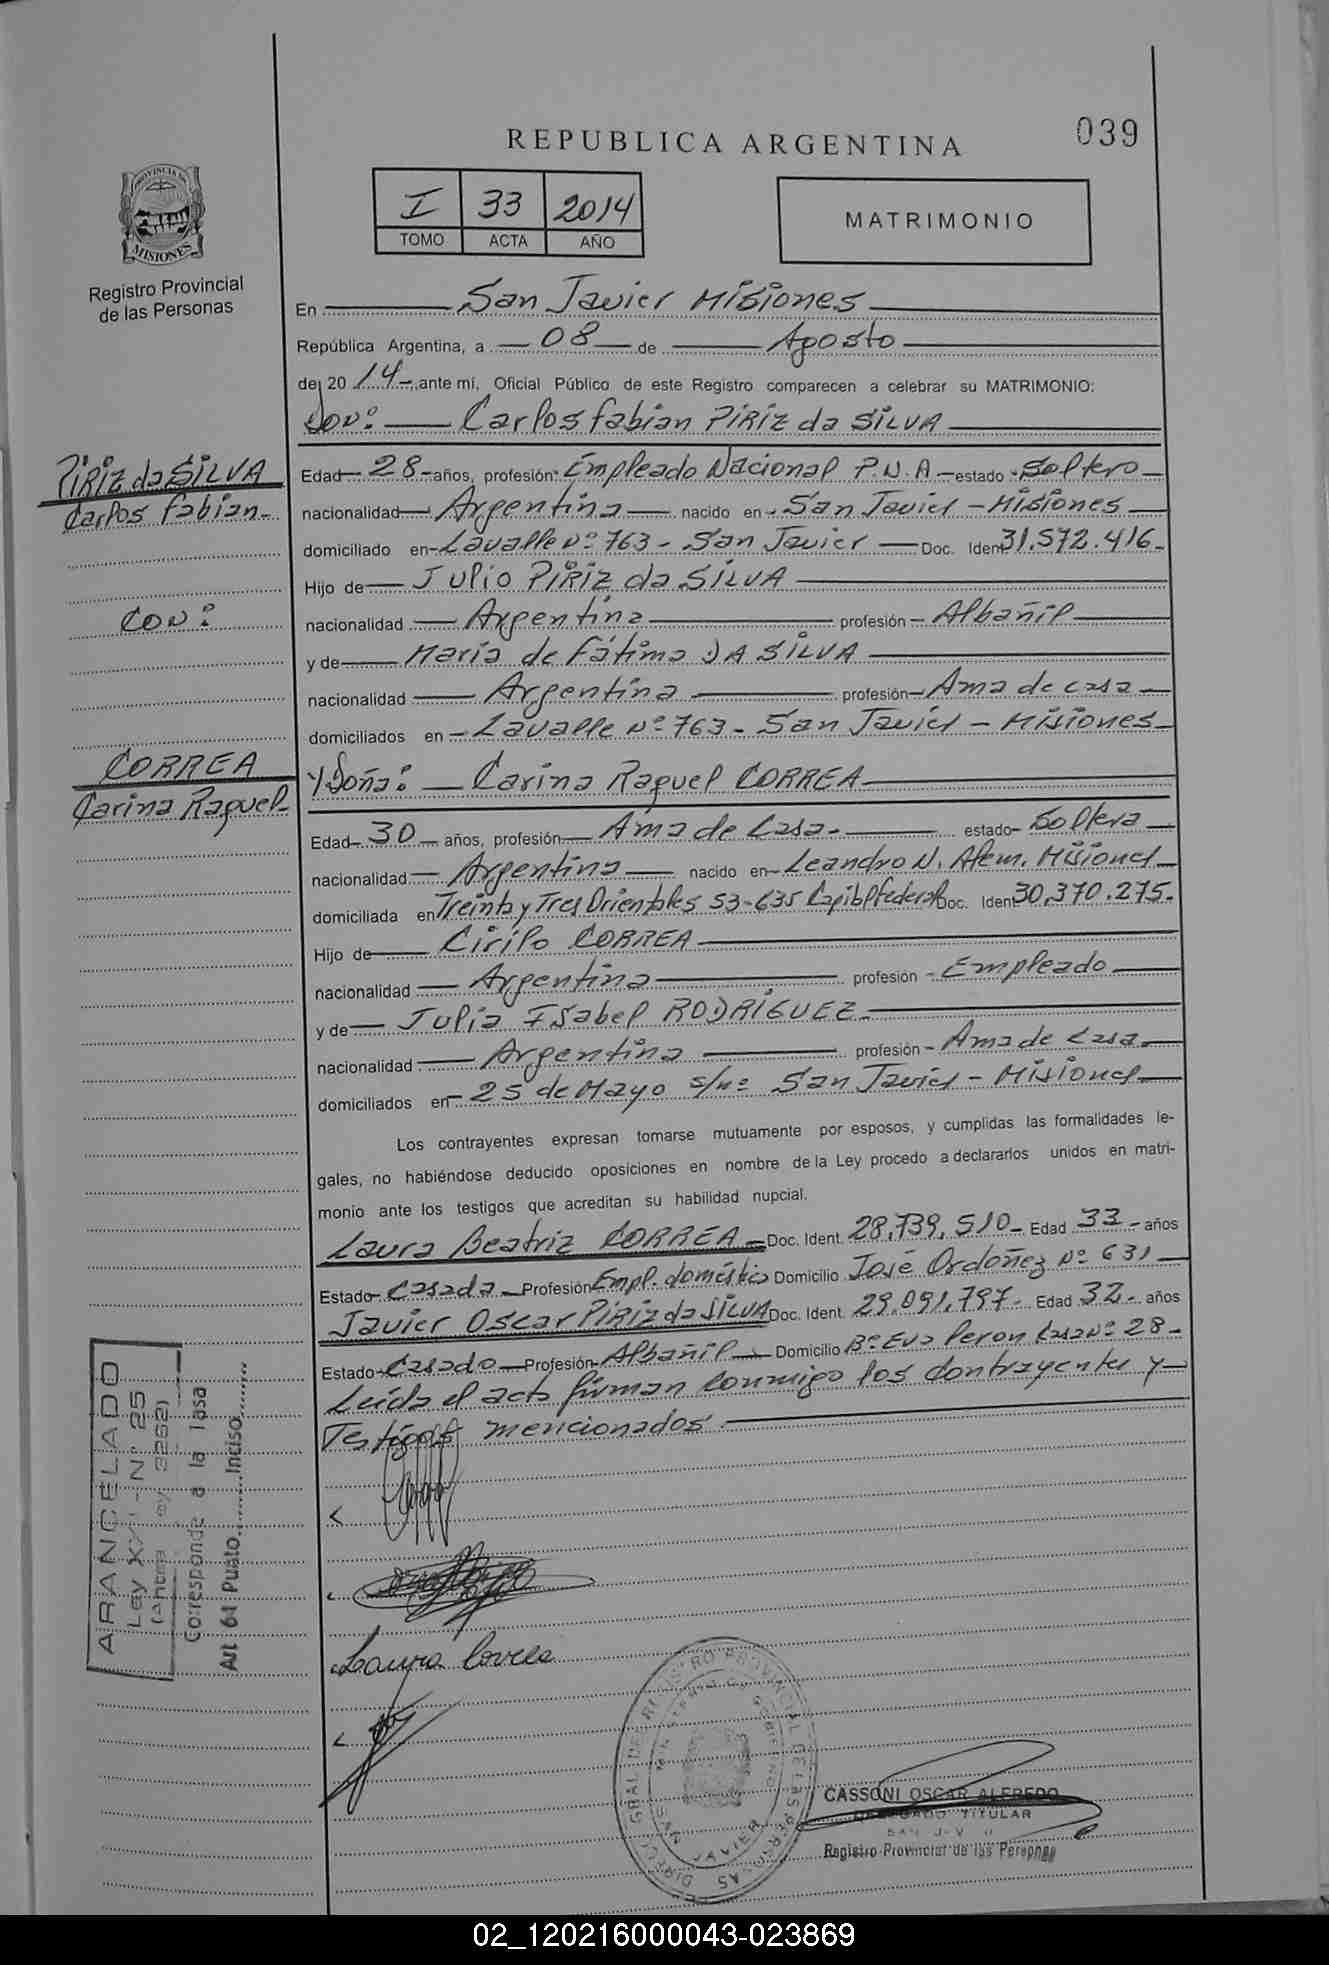 039
REPUBLICA ARGENTINA
I 33 2014
TOMO ACTA AÑO
MATRIMONIO
PROVINCIA DE
MISIONES
Registro Provincial
de las Personas
En San Javier Misiones
República Argentina, a 08 de Agosto
de 20 14 ante mí, Oficial Público de este Registro comparecen a celebrar su MATRIMONIO:
Don: Carlos Fabian PIRIZ da SILVA
PIRIZ da SILVA
Carlos Fabian
Edad 28 años, profesión: Empleado Nacional P.N.A estado Soltero
nacionalidad Argentina nacido en San Javier - Misiones
domiciliado en Lavalle Nº 763 - San Javier Doc. Ident 31.572.416
Hijo de Julio PIRIZ da SILVA
CON:
nacionalidad Argentina profesión Albañil
y de María de Fátima DA SILVA
nacionalidad Argentina profesión Ama de casa
domiciliados en Lavalle Nº 763 - San Javier - Misiones
CORREA
Carina Raquel
Y Doña: Carina Raquel CORREA
Edad 30 años, profesión Ama de Casa estado Soltera
nacionalidad Argentina nacido en Leandro N. Alem. Misiones
domiciliada en Treinta y Tres Orientales 53-635 Capital Federal Doc. Ident 30.370.275
Hijo de Cirilo CORREA
nacionalidad Argentina profesión Empleado
y de Julia Isabel RODRÍGUEZ
nacionalidad Argentina profesión Ama de Casa
domiciliados en 25 de Mayo s/nº San Javier - Misiones
Los contrayentes expresan tomarse mutuamente por esposos, y cumplidas las formalidades le-
gales, no habiéndose deducido oposiciones en nombre de la Ley procedo a declararlos unidos en matri-
monio ante los testigos que acreditan su habilidad nupcial.
Laura Beatriz CORREA Doc. Ident. 28.739.510 Edad 33 años
Estado Casada Profesión Empl. doméstica Domicilio José Ordoñez Nº 631
Javier Oscar PIRIZ da SILVA Doc. Ident. 29.091.797 Edad 32 años
Estado Casado Profesión Albañil Domicilio Bº Eva Peron Casa Nº 28
Leída el acta firman conmigo los contrayentes y
Testigos mencionados
ARANCELADO
Ley XVI - Nº 25
(Ahora Ley 3262)
Corresponde a la Tasa
Art 61 Punto Inciso
Laura Correa
CASSONI OSCAR ALFREDO
DELEGADO TITULAR
SAN JAVIER
Registro Provincial de las Personas
02_120216000043-023869